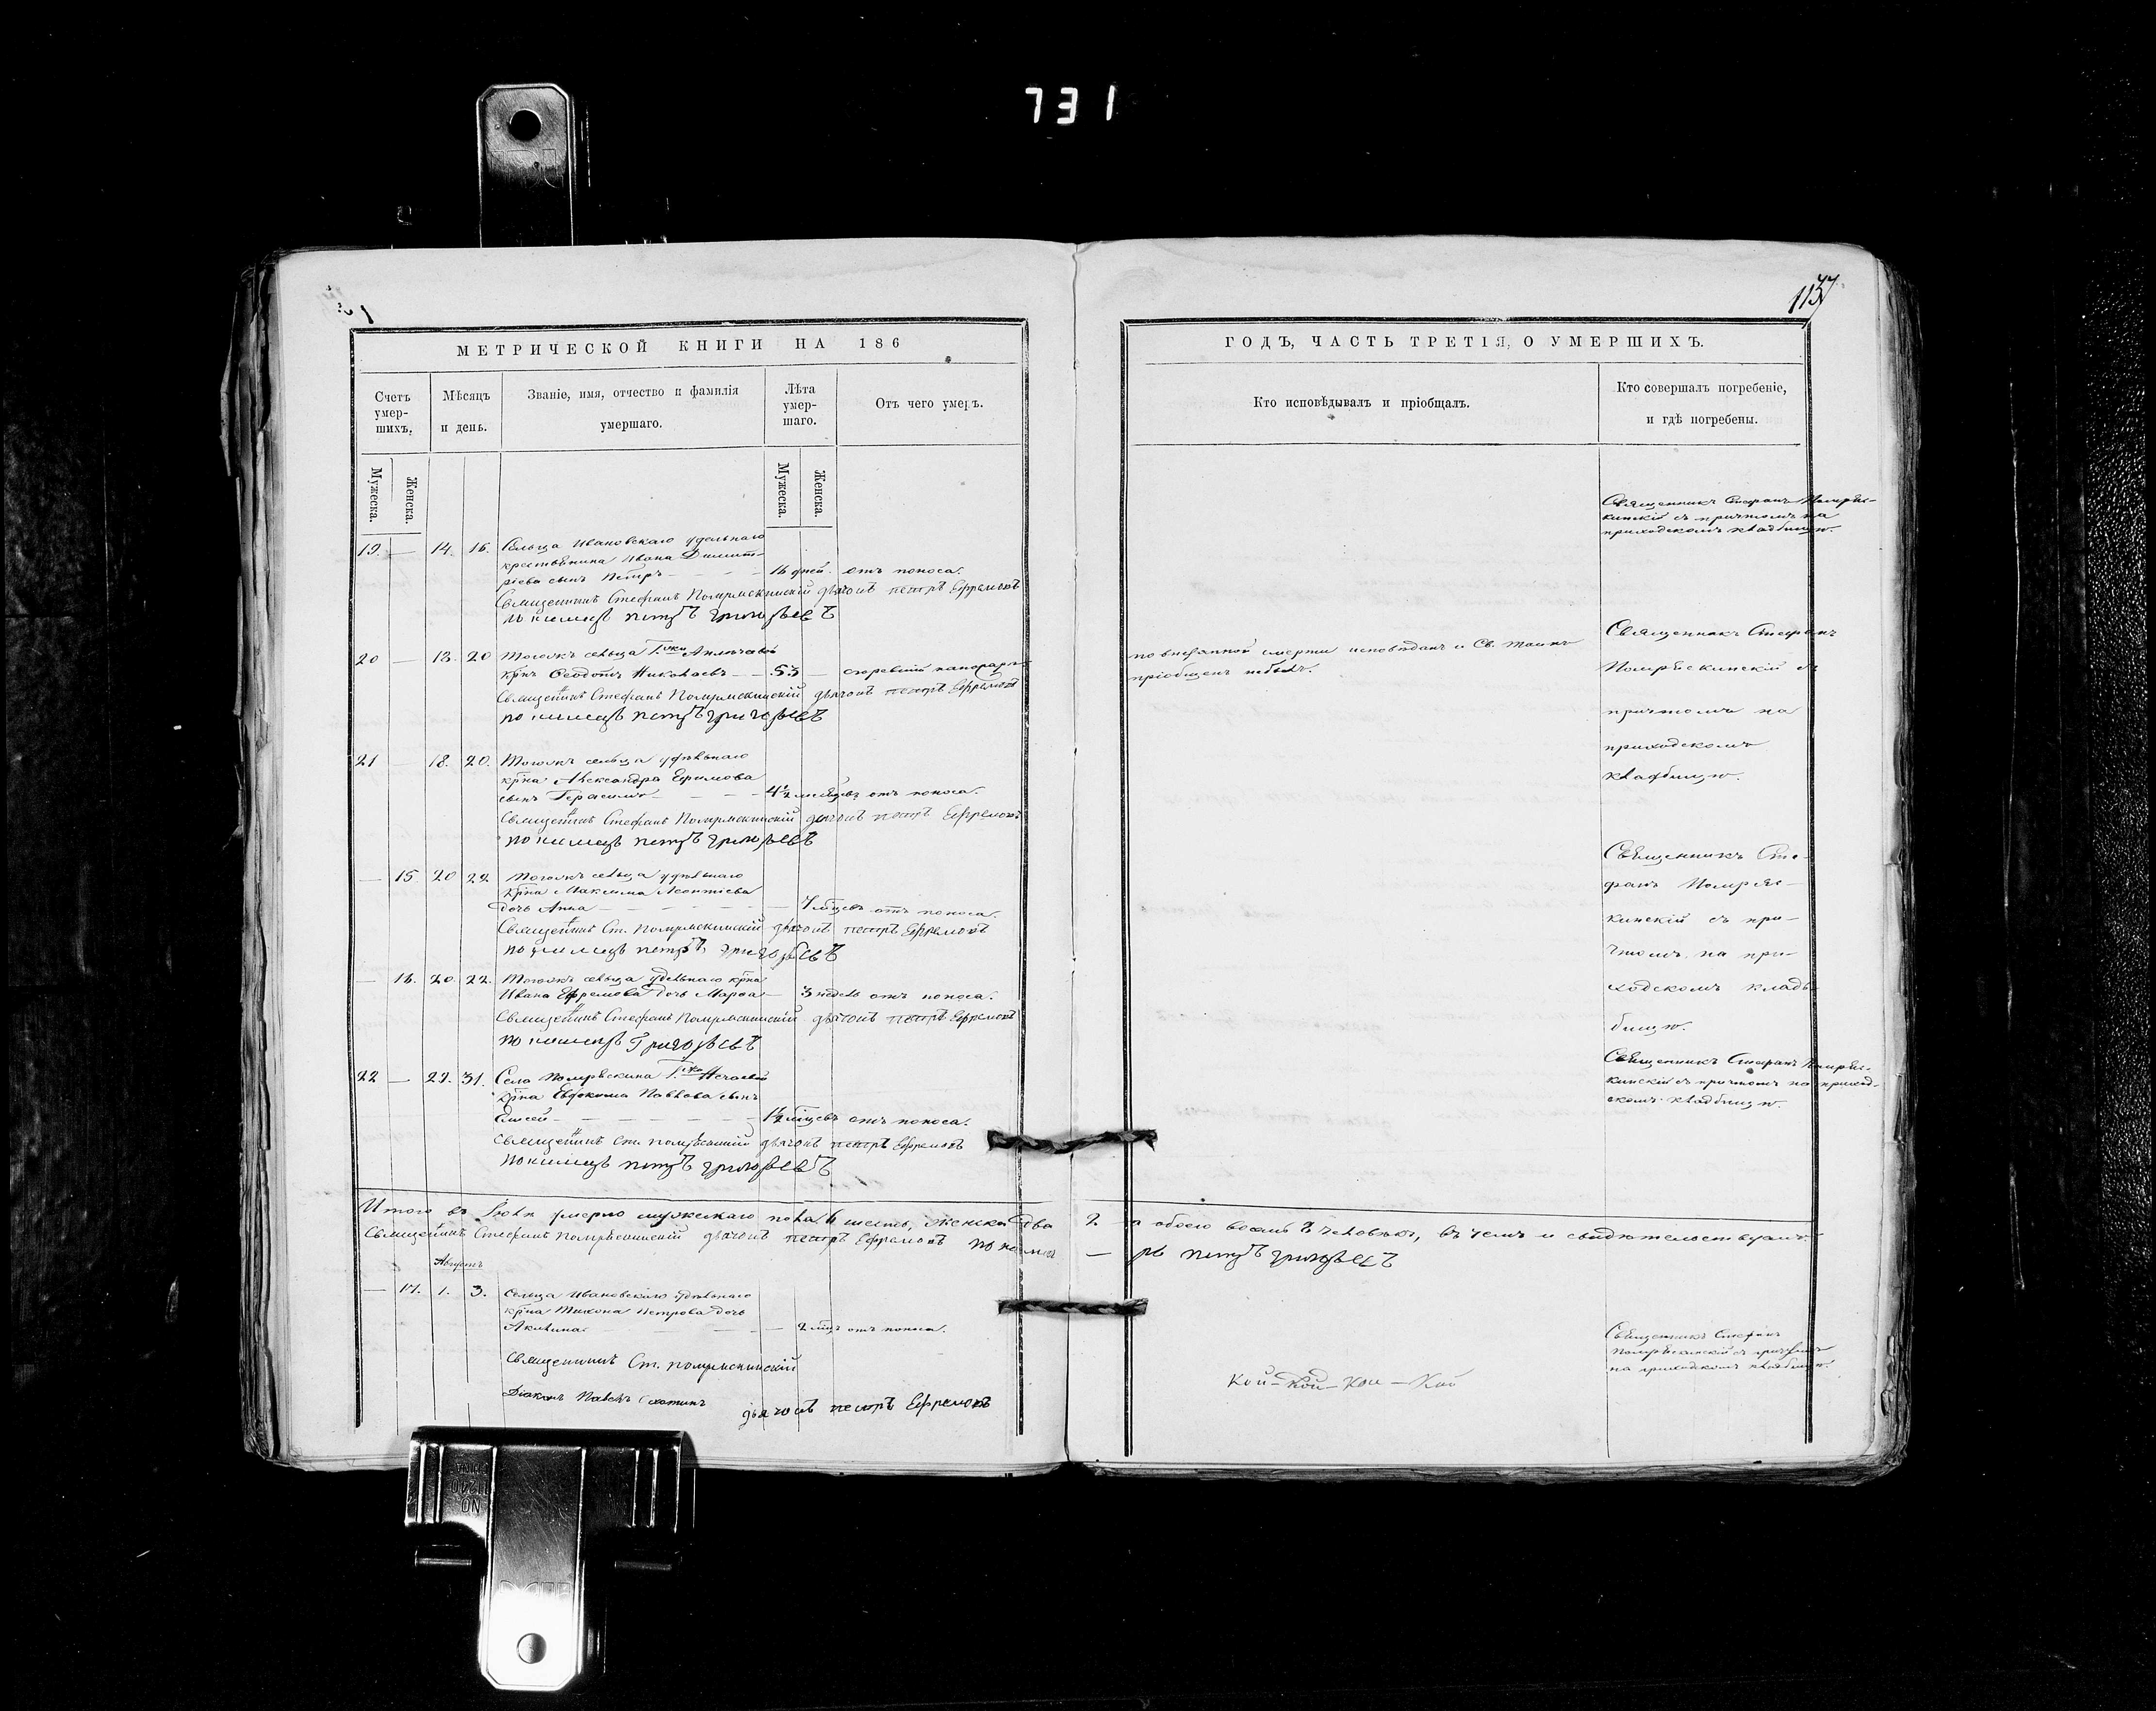 731
1137
МЕТРИЧЕСКОЙ КНИГИ НА 186
Счетъ умер-шихъ.
Мѣсяцъ и день.
Званіе, имя, отчество и фамилія умершаго.
Лѣта умер-шаго.
Отъ чего умеръ.
Мужеска.
Женска.
Мужеска.
Женска.
19. — 14. 16. Сельца Ивановскаго удѣльнаго
крестьянина Ивана Димит-
ріева сынъ Петръ — 16 дней. отъ поноса.
Священникъ Стефанъ дьячокъ петръ Ефремовъ
пономарь петръ григорьевъ
20 — 18. 20 Тогожъ сельца
крнъ Ѳеодотъ Николаевъ — 53 —
Священникъ Стефанъ дьячокъ петръ Ефремовъ
пономарь петръ григорьевъ
21 — 18. 20. Тогожъ сельца удѣльнаго
крна Александра Ефимова
сынъ Герасимъ — 4½ мѣсяцевъ отъ поноса.
Священникъ Стефанъ дьячокъ петръ Ефремовъ
пономарь петръ григорьевъ
— 15 20 22 Тогожъ сельца удѣльнаго
крна Максима Леонтіева
дочь Анна — 7 мцевъ отъ поноса.
Священникъ Ст. дьячокъ петръ Ефремовъ
пономарь петръ григорьевъ
— 16. 20. 22. Тогожъ сельца удѣльнаго крна
Ивана Ефремова дочь Марѳа — 3 недѣль отъ поноса.
Священникъ Стефанъ дьячокъ петръ Ефремовъ
пономарь Григорьевъ
22 — 29. 31. Села
крна Евдокима Павлова сынъ
Елисей — 1½ мцевъ отъ поноса.
Священникъ Ст. дьячокъ петръ Ефремовъ
пономарь петръ григорьевъ
Итого въ Іюлѣ умерло мужескаго пола 6 шесть, женска два
Священникъ Стефанъ дьячокъ петръ Ефремовъ понома
Августъ
— 17. 1. 3. Сельца Ивановскаго удѣльнаго
крна Тихона Петрова дочь
Акилина — 2 мцъ отъ поноса.
Священникъ Ст.
Діаконъ Павелъ
дьячокъ петръ Ефремовъ
ГОДЪ, ЧАСТЬ ТРЕТІЯ, О УМЕРШИХЪ.
Кто исповѣдывалъ и пріобщалъ.
Кто совершалъ погребеніе, и гдѣ погребены.
Священникъ Стефанъ
съ причтомъ на
приходскомъ кладбищѣ.
по внезапной смерти исповѣданъ и Св. Таинъ
пріобщенъ небылъ.
Священникъ Стефанъ
съ
причтомъ на
приходскомъ
кладбищѣ.
Священникъ Сте-
фанъ
съ при-
чтомъ на при-
ходскомъ кладь-
бищѣ.
Священникъ Стефанъ
съ причтомъ на приход-
скомъ кладбищѣ.
2. — а обоего восемь 8 человѣкъ, въ чемъ и свидѣтельствуемъ.
— рь петръ григорьевъ
Священникъ Стефанъ
съ причтомъ
на приходскомъ кладбищѣ.
Кой — Кой — Кои — Кой